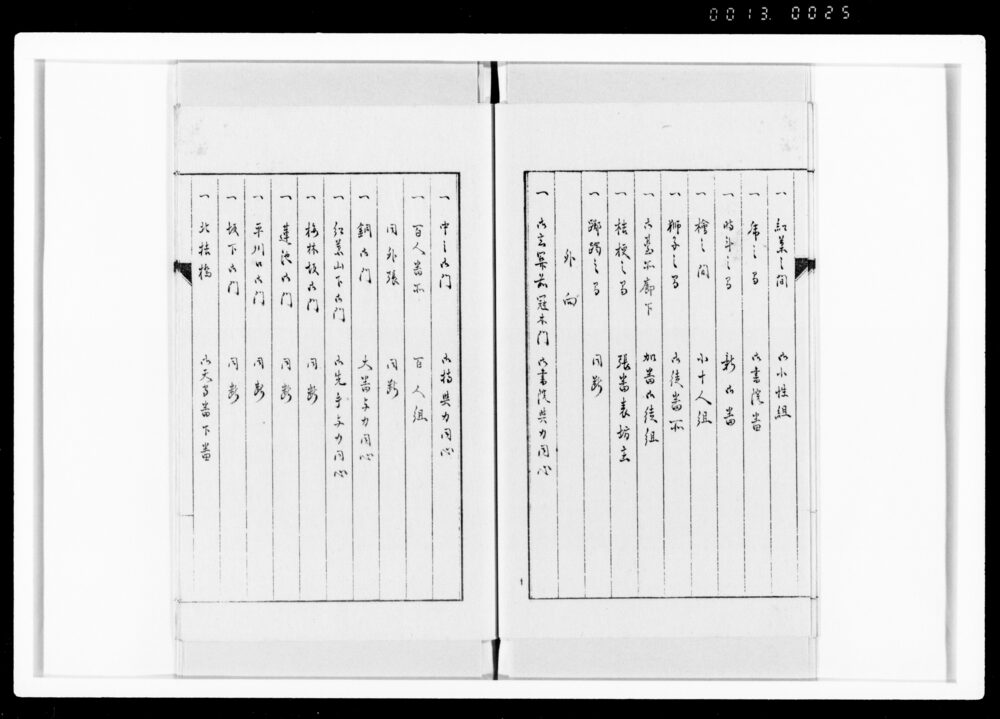 0013 0025
一 紅葉之間 御小性組
一 虎之間 御書院番
一 時斗之間 新御番
一 檜之間 小十人組
一 獅子之間 御徒番所
一 御臺所廊下 加番御徒組
一 桔梗之間 張番表坊主
一 躑躅之間 同断
外向
一 御玄関前冠木门 御書院与力同心
一 中之御门 御持与力同心
一 百人番所 百人組
同外張 同断
一 銅御门 大番与力同心
一 紅葉山下御门 御先手与力同心
一 梅林坂御门 同断
一 蓮池御门 同断
一 平川口御门 同断
一 坂下御门 同断
一 北桔橋 御天守番下番